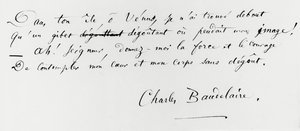 Dans ton île, ô Vénus, je n'ai trouvé debout
qu'un gibet dégouttant dégoûtant où pendait mon image!
— Ah! Seigneur, donnez-moi la force et le courage
De contempler mon cœur et mon corps sans dégoût.
Charles Baudelaire.